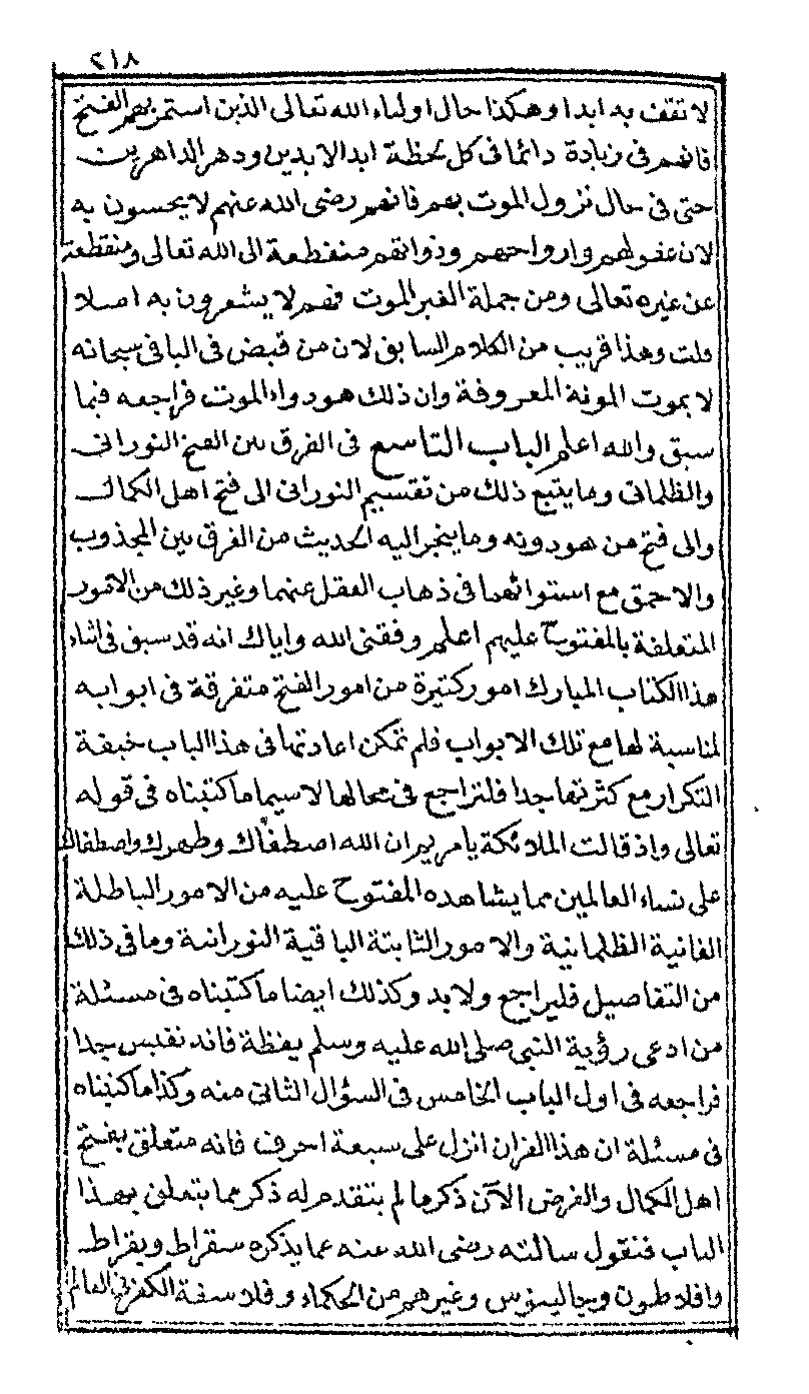 ٢١٨
لا تقف به ابدا وهكذا حال اولياء الله تعالى الذين استمر بهم الفتح
فانهم فى زيادة دائما فى كل لحظة ابد الابدين ودهر الداهرين
حتى فى حال نزول الموت بهم فانهم رضى الله عنهم لا يحسون به
لان عقولهم وارواحهم وذواتهم منقطعة الى الله تعالى ومنقطعة
عن غيره تعالى ومن جملة الغير الموت فهم لا يشعرون به اصلا
قلت وهذا قريب من الكلام السابق لان من قبض فى الباقى سبحانه
لا يموت الموتة المعروفة وان ذلك هو دواء الموت فراجعه فيما
سبق والله اعلم الباب التاسع فى الفرق بين الفتح النورانى
والظلمانى وما يتبع ذلك من تقسيم النورانى الى فتح اهل الكمال
والى فتح من هو دونه وما ينجر اليه الحديث من الفرق بين المجذوب
والاحمق مع استوائهما فى ذهاب العقل عنهما وغير ذلك من الامور
المتعلقة بالمفتوح عليهم اعلم وفقنى الله واياك انه قد سبق فى اثناء
هذا الكتاب المبارك امور كثيرة من امور الفتح متفرقة فى ابوابه
لمناسبة لها مع تلك الابواب فلم تمكن اعادتها فى هذا الباب خيفة
التكرار مع كثرتها جدا فلتراجع فى محالها لا سيما ما كتبناه فى قوله
تعالى واذ قالت الملائكة يا مريم ان الله اصطفاك وطهرك واصطفاك
على نساء العالمين مما يشاهده المفتوح عليه من الامور الباطلة
الفانية الظلمانية والامور الثابتة الباقية النورانية وما فى ذلك
من التفاصيل فليراجع ولا بد وكذلك ايضا ما كتبناه فى مسئلة
من ادعى رؤية النبى صلى الله عليه وسلم يقظة فانه نفيس جدا
فراجعه فى اول الباب الخامس فى السؤال الثانى منه وكذا ما كتبناه
فى مسئلة ان هذا القران انزل على سبعة احرف فانه متعلق بفتح
اهل الكمال والغرض الآن ذكر ما لم يتقدم له ذكر مما يتعلق بهذا
الباب فنقول سالته رضى الله عنه عما يذكره سقراط وبقراط
وافلاطون وجالينوس وغيرهم من الحكماء وفلاسفة الكفر فى العالم